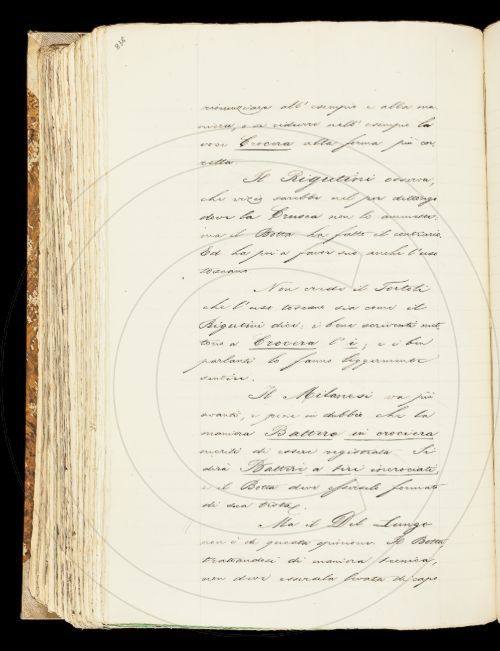 836
rinunziare all' esempio e alla ma-
niera, o a ridurre nell' esempio la
voce Crocera alla forma più cor-
retta.
Il Rigutini osserva,
che vizio sarebbe nel por dittongo
dove la Crusca non lo ammette;
ma il Botta ha fatto il contrario.
Ed ha poi a favor suo anche l'uso
toscano.
Non crede il Tortoli
che l'uso toscano sia come il
Rigutini dice; i bene scriventi met-
tono a Crocera l' i; e i ben
parlanti lo fanno leggermente
sentire.
Il Milanesi va più
avanti, e pone in dubbio che la
maniera Battere in crociera
meriti di essere registrata. Si
dirà Battere a tiri incrociati,
e il Botta deve essersela formata
di sua testa.
Ma il Del Lungo
non è di questa opinione. Il Botta,
trattandosi di maniera tecnica,
non deve essersela levata di capo